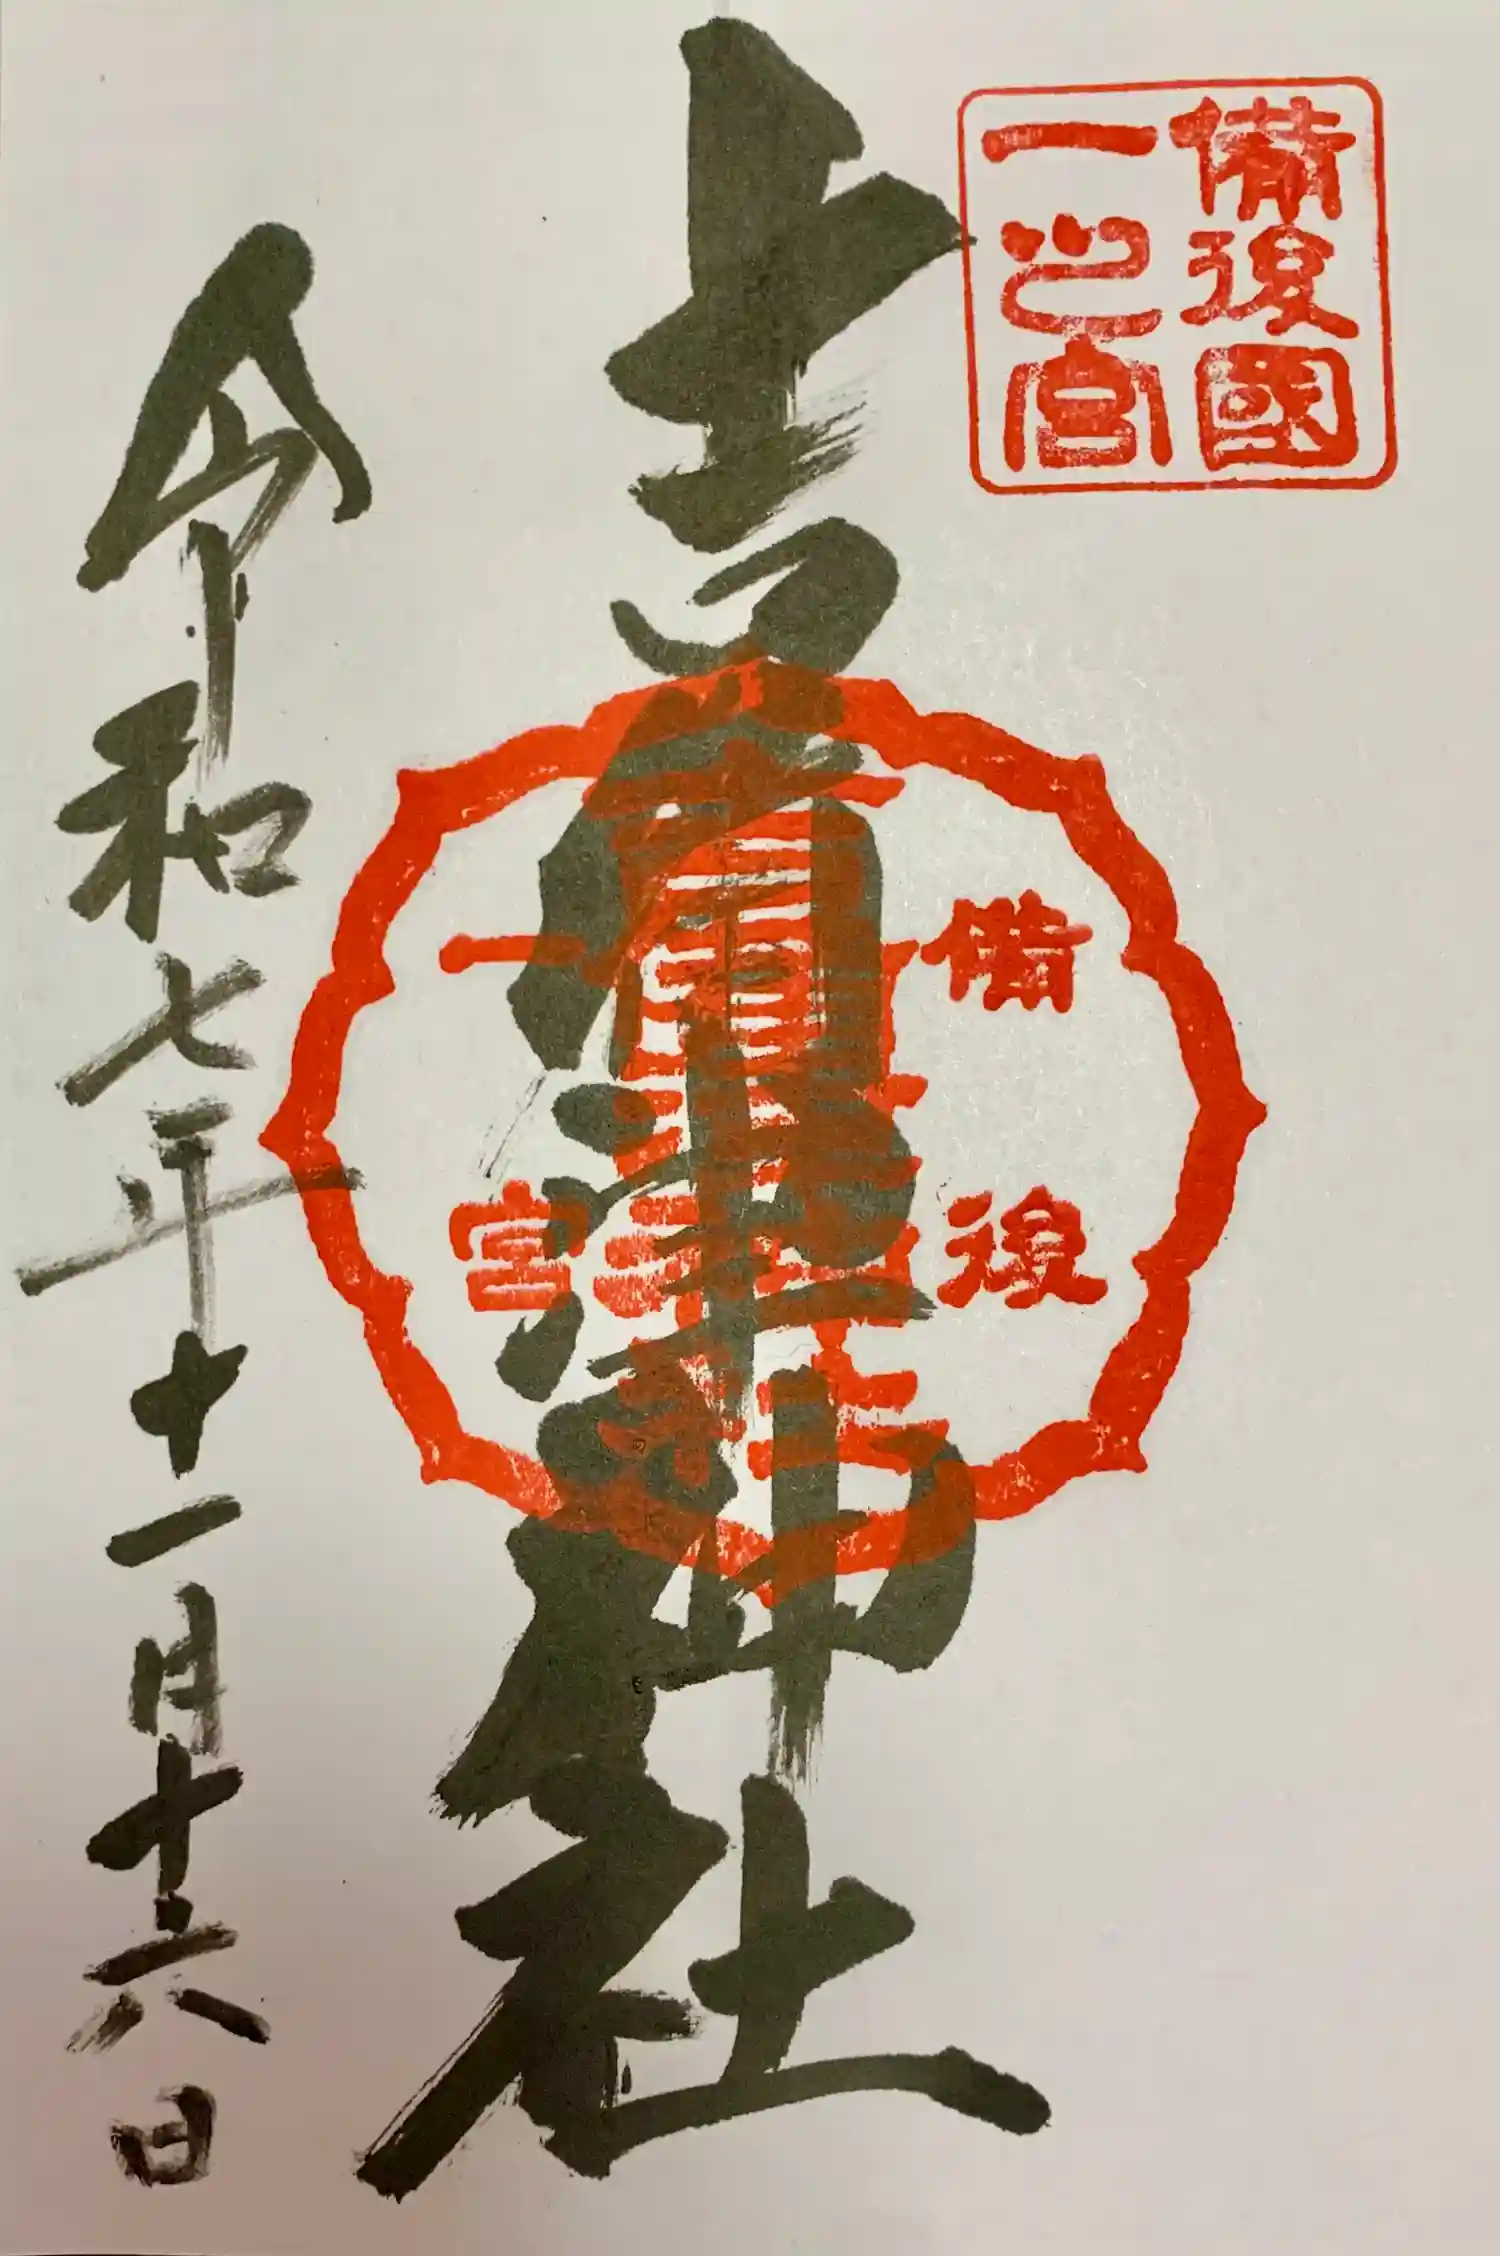 備後國
一之宮
吉備津神社
備後
一宮
令和七年十一月十六日